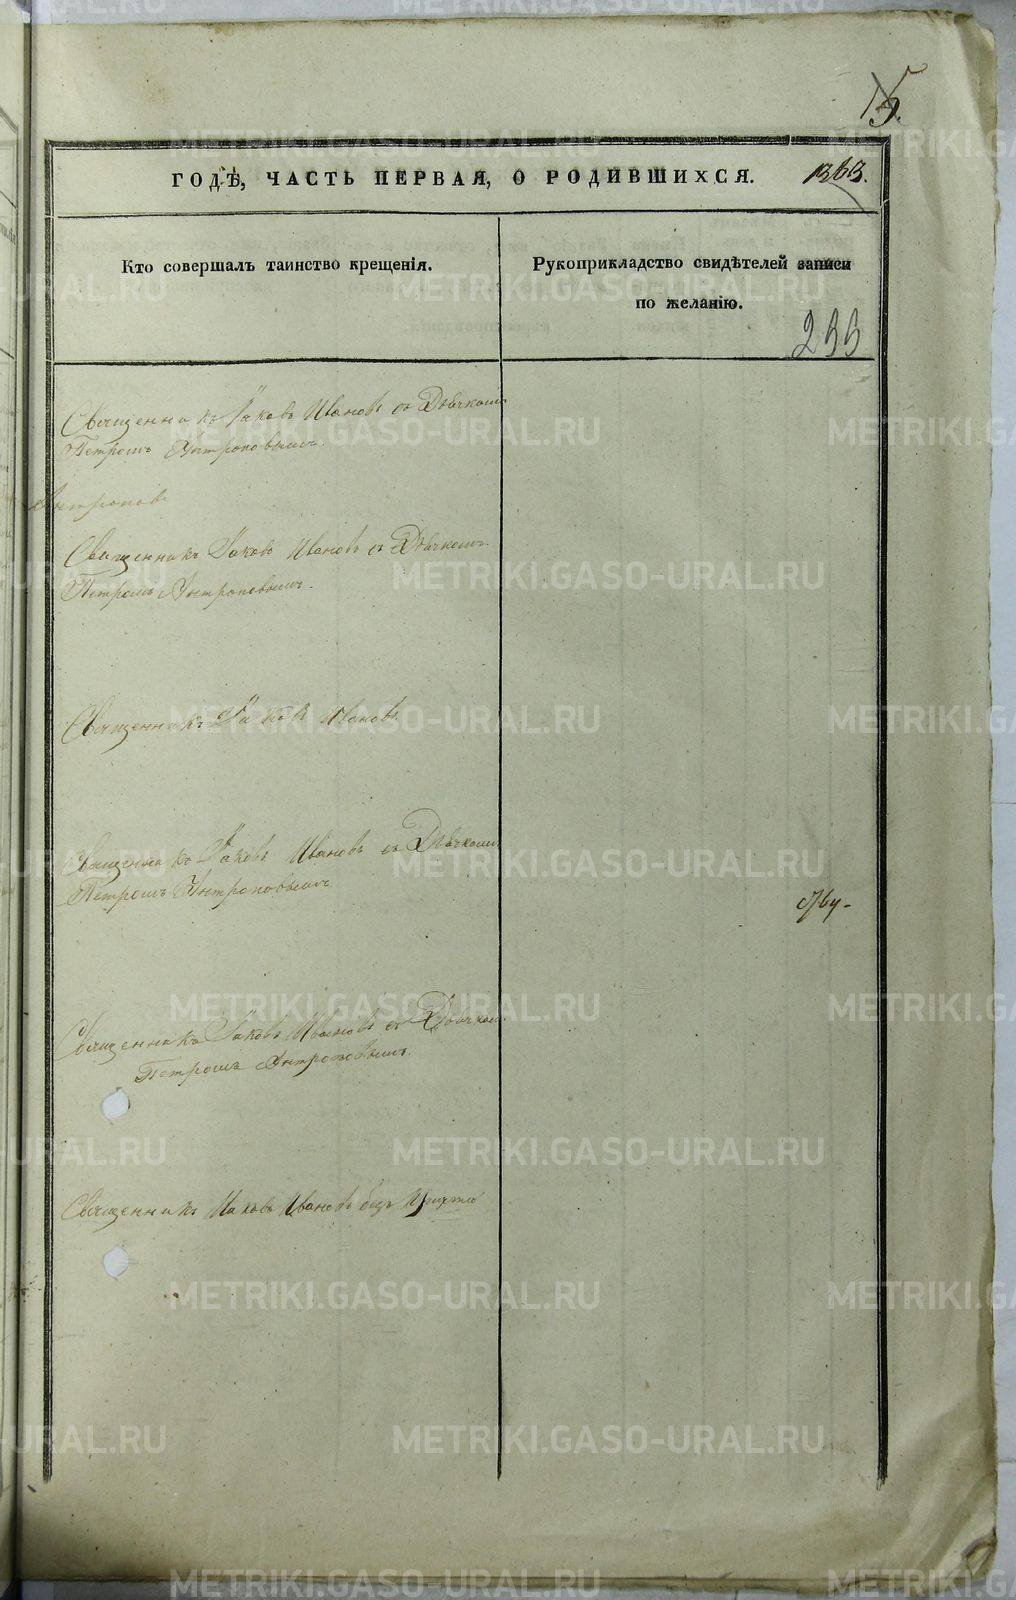 5.
ГОДѢ, ЧАСТЬ ПЕРВАЯ, О РОДИВШИХСЯ. 1363.
Кто совершалъ таинство крещенія.
Рукоприкладство свидѣтелей записи
по желанію.
233
Священникъ Іаковъ Ивановъ съ Дьячкомъ
Петромъ Антроповымъ.
Антропов
Священникъ Іаковъ Ивановъ съ Дьячкомъ
Петромъ Антроповымъ.
Священникъ Іаковъ Ивановъ
Священникъ Іаковъ Ивановъ съ Дьячкомъ
Петромъ Антроповымъ
Священникъ Іаковъ Ивановъ съ Дьячком
Петромъ Антроповымъ.
Священникъ Иаковъ Ивановъ безъ причта
METRIKI.GASO-URAL.RU